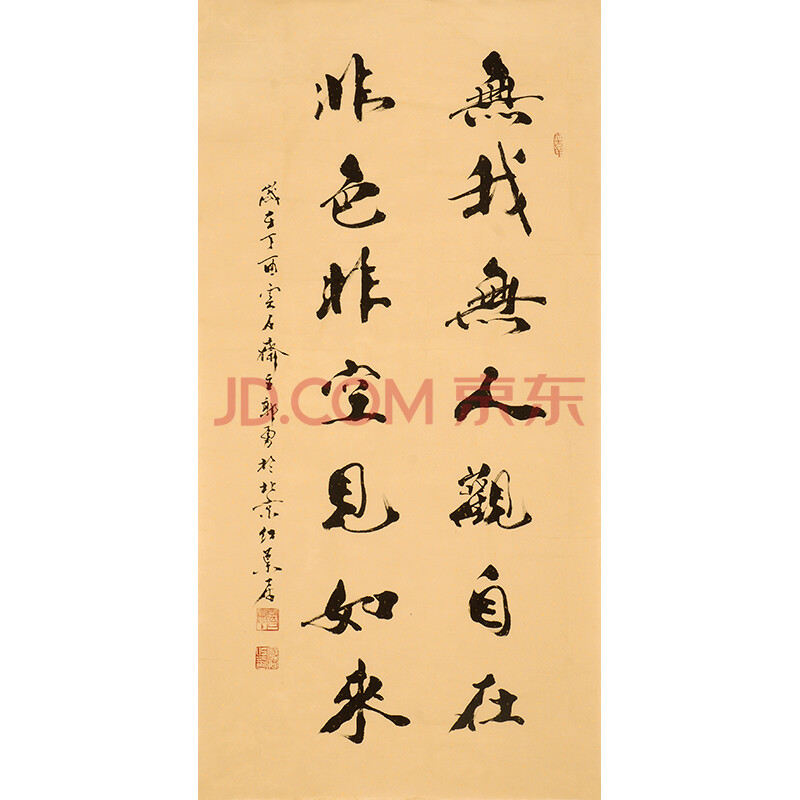 無我無人觀自在
非色非空見如來
歲在丁酉雲石齋主郭勇於北京紅葉居
JD.COM 京东